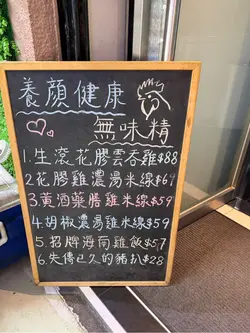 養顏健康
無味精
1.生滾花膠雲吞雞$88
2花膠雞濃湯米線$69
3黃酒藥膳雞米線$59
4.胡椒濃湯雞米線$59
5.招牌海南雞飯$57
6.失傳已久的豬扒$28